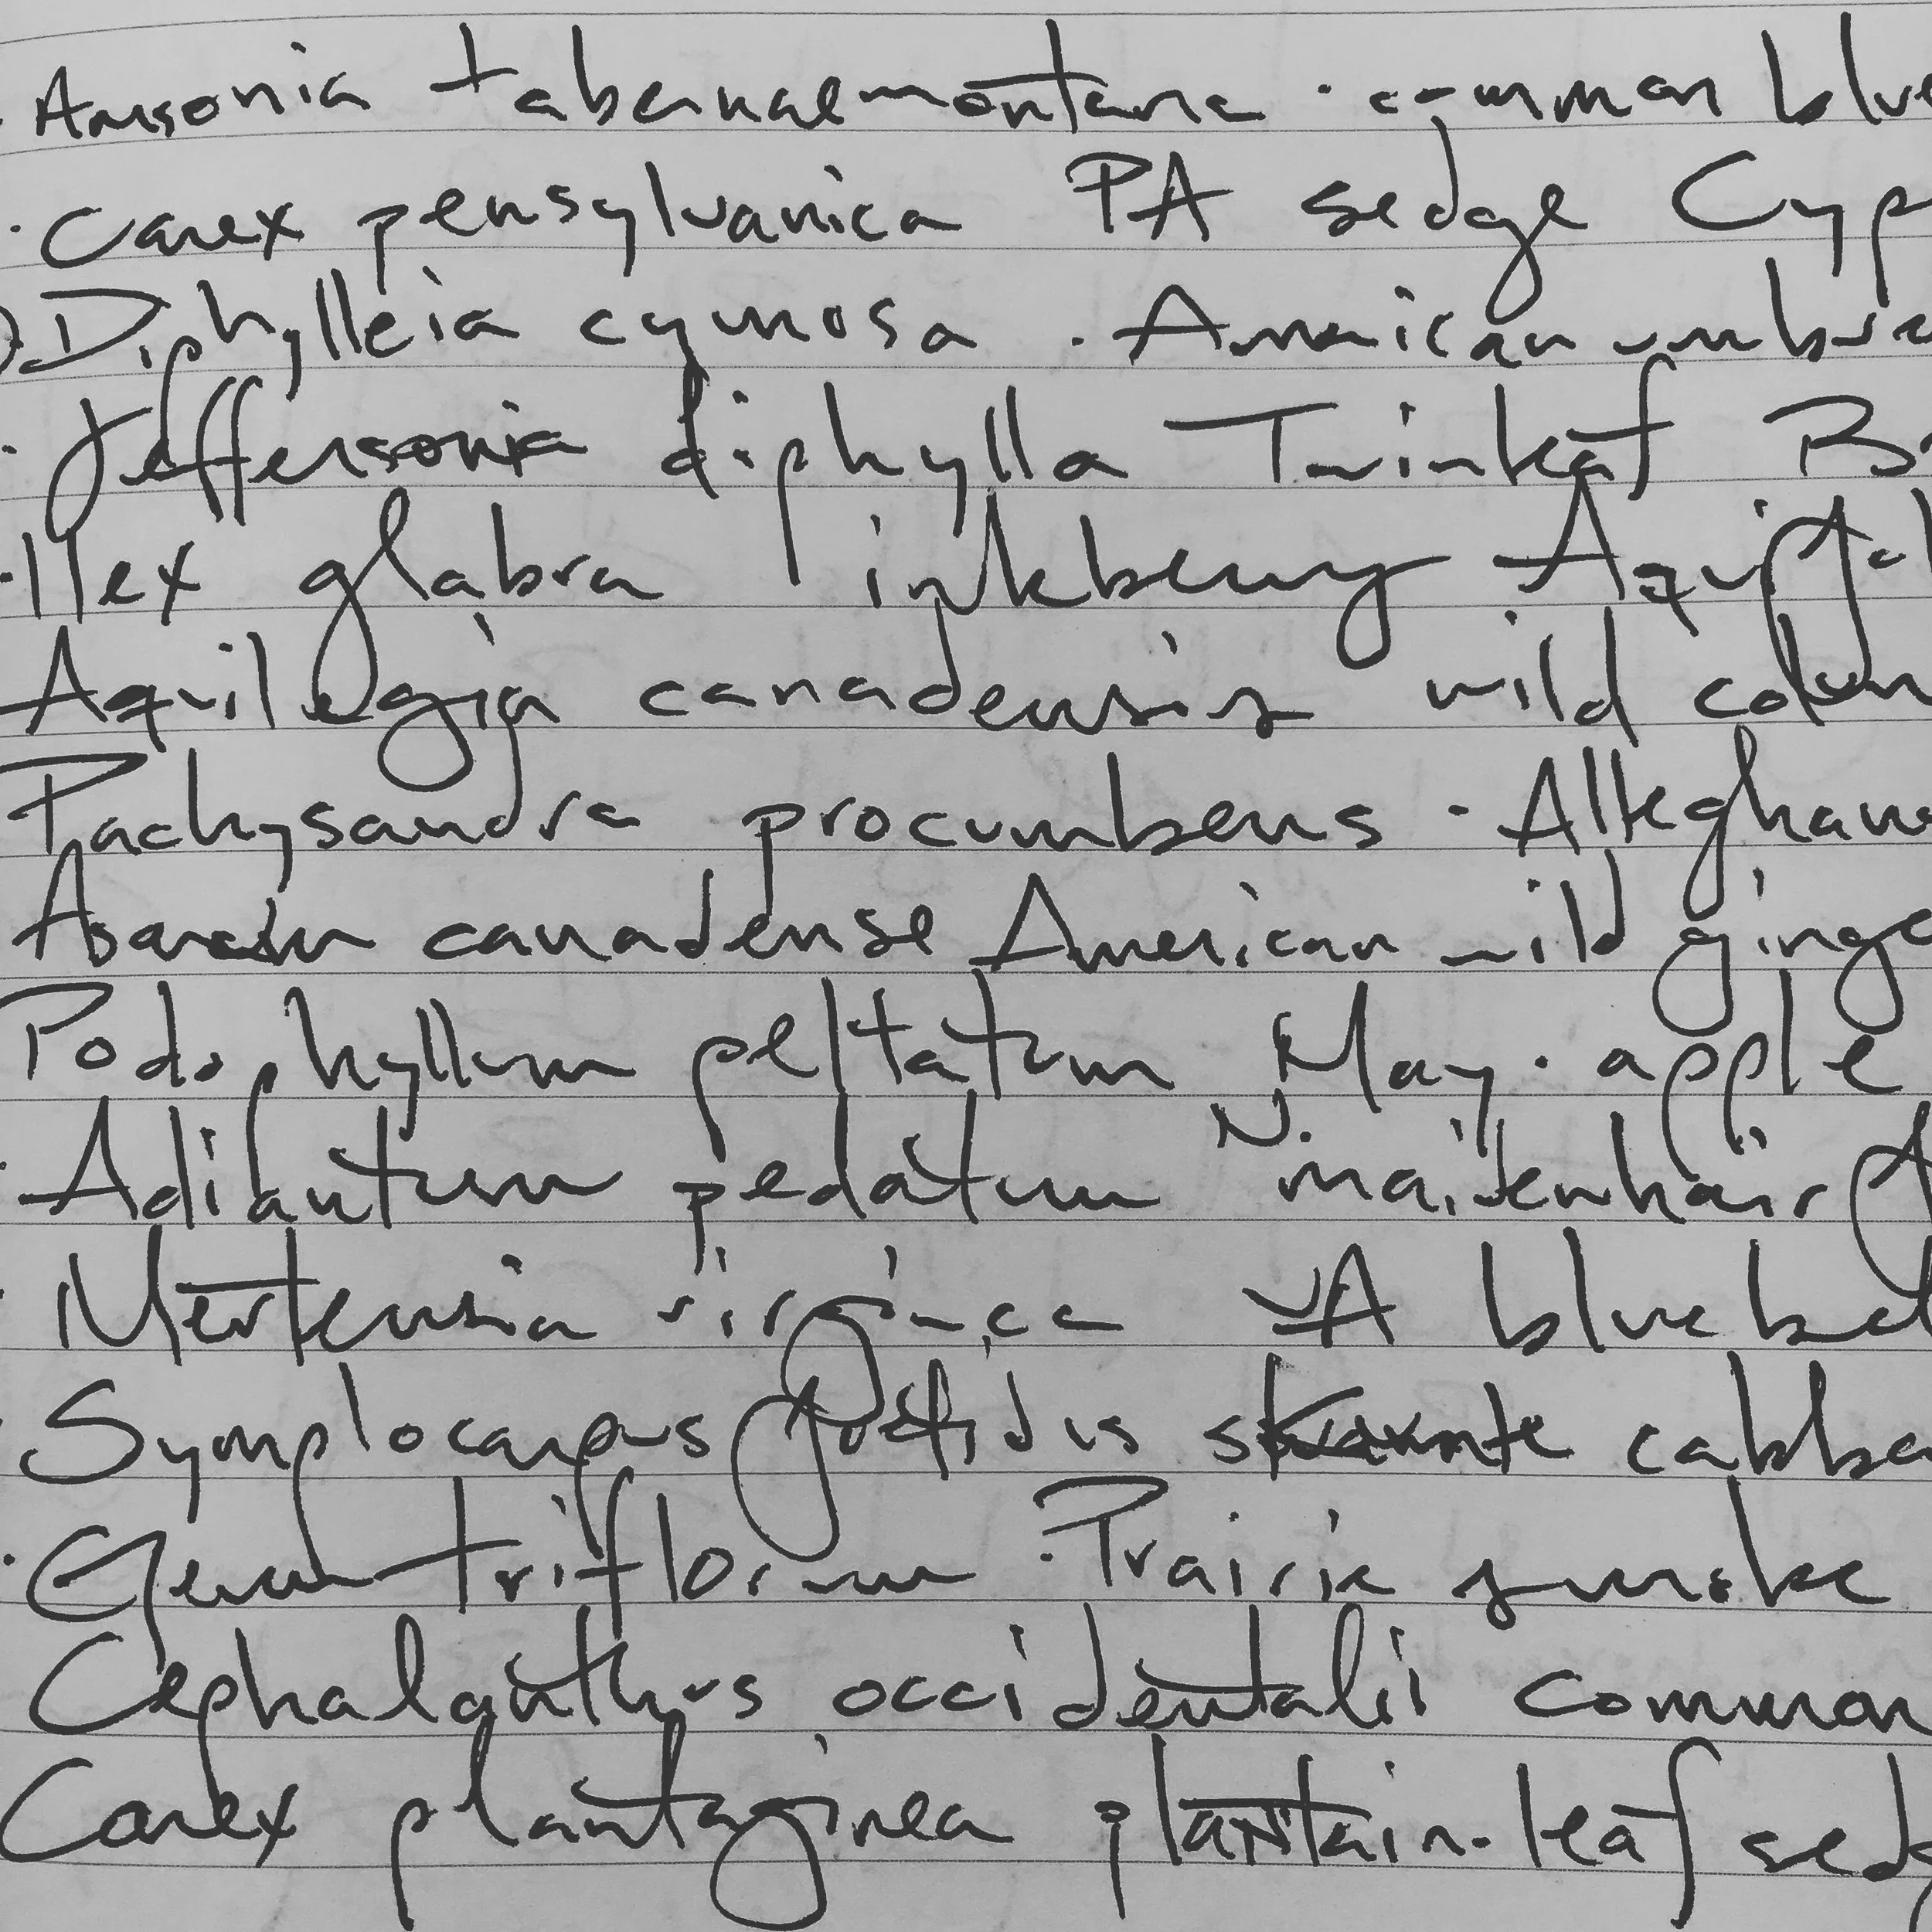 · Amsonia tabernaemontana · common blue
· Carex pensylvanica PA sedge Cyp
Diphylleia cymosa · American umbre
· Jeffersonia diphylla Twinleaf B
· Ilex glabra inkberry Aquifol
Aquilegia canadensis wild colum
Pachysandra procumbens · Alleghany
Asarum canadense American wild ginge
Podophyllum peltatum May·apple
· Adiantum pedatum N. maidenhair f
· Mertensia virginica VA bluebel
· Symplocarpus foetidus cabba
· Geum triflorum · Prairie smoke
Cephalanthus occidentalis common
Carex plantaginea plantain-leaf sedg